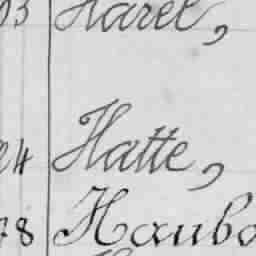 93 Harel,
24 Hatte,
78 Haubo